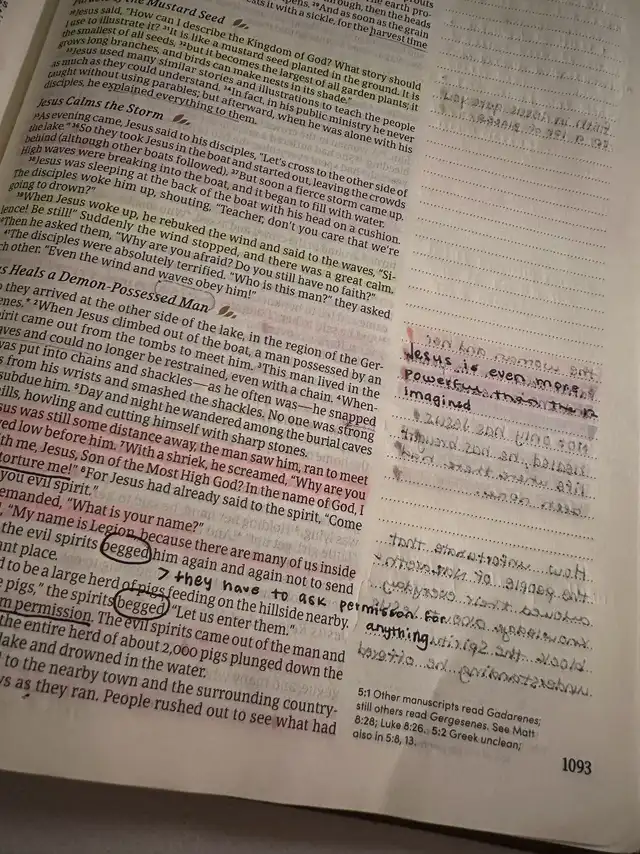 of the Mustard Seed
eats it with a sickle, for the harvest time
pens. 29And as soon as the grain
though, then the heads
earth pro-
30Jesus said, "How can I describe the Kingdom of God? What story should
I use to illustrate it? 31It is like a mustard seed planted in the ground. It is
the smallest of all seeds, 32but it becomes the largest of all garden plants; it
grows long branches, and birds can make nests in its shade."
33Jesus used many similar stories and illustrations to teach the people
as much as they could understand. 34In fact, in his public ministry he never
taught without using parables; but afterward, when he was alone with his
disciples, he explained everything to them.
Jesus Calms the Storm
35As evening came, Jesus said to his disciples, "Let's cross to the other side of
the lake." 36So they took Jesus in the boat and started out, leaving the crowds
behind (although other boats followed). 37But soon a fierce storm came up.
High waves were breaking into the boat, and it began to fill with water.
38Jesus was sleeping at the back of the boat with his head on a cushion.
The disciples woke him up, shouting, "Teacher, don't you care that we're
going to drown?"
39When Jesus woke up, he rebuked the wind and said to the waves, "Si-
lence! Be still!" Suddenly the wind stopped, and there was a great calm.
Then he asked them, "Why are you afraid? Do you still have no faith?"
41The disciples were absolutely terrified. "Who is this man?" they asked
ch other. "Even the wind and waves obey him!"
us Heals a Demon-Possessed Man
they arrived at the other side of the lake, in the region of the Ger-
enes.* 2When Jesus climbed out of the boat, a man possessed by an
spirit came out from the tombs to meet him. 3This man lived in the
aves and could no longer be restrained, even with a chain. 4When-
was put into chains and shackles—as he often was—he snapped
s from his wrists and smashed the shackles. No one was strong
subdue him. 5Day and night he wandered among the burial caves
ills, howling and cutting himself with sharp stones.
sus was still some distance away, the man saw him, ran to meet
ed low before him. 7With a shriek, he screamed, "Why are you
ith me, Jesus, Son of the Most High God? In the name of God, I
torture me!" 8For Jesus had already said to the spirit, "Come
you evil spirit."
emanded, "What is your name?"
"My name is Legion, because there are many of us inside
the evil spirits begged him again and again not to send
ant place.
d to be a large herd of pigs feeding on the hillside nearby.
e pigs," the spirits begged. "Let us enter them."
m permission. The evil spirits came out of the man and
the entire herd of about 2,000 pigs plunged down the
lake and drowned in the water.
to the nearby town and the surrounding country-
ys as they ran. People rushed out to see what had
Jesus is even more
powerful than the n
imagined
> they have to ask permission for
anything
5:1 Other manuscripts read Gadarenes;
still others read Gergesenes. See Matt
8:28; Luke 8:26. 5:2 Greek unclean;
also in 5:8, 13.
1093